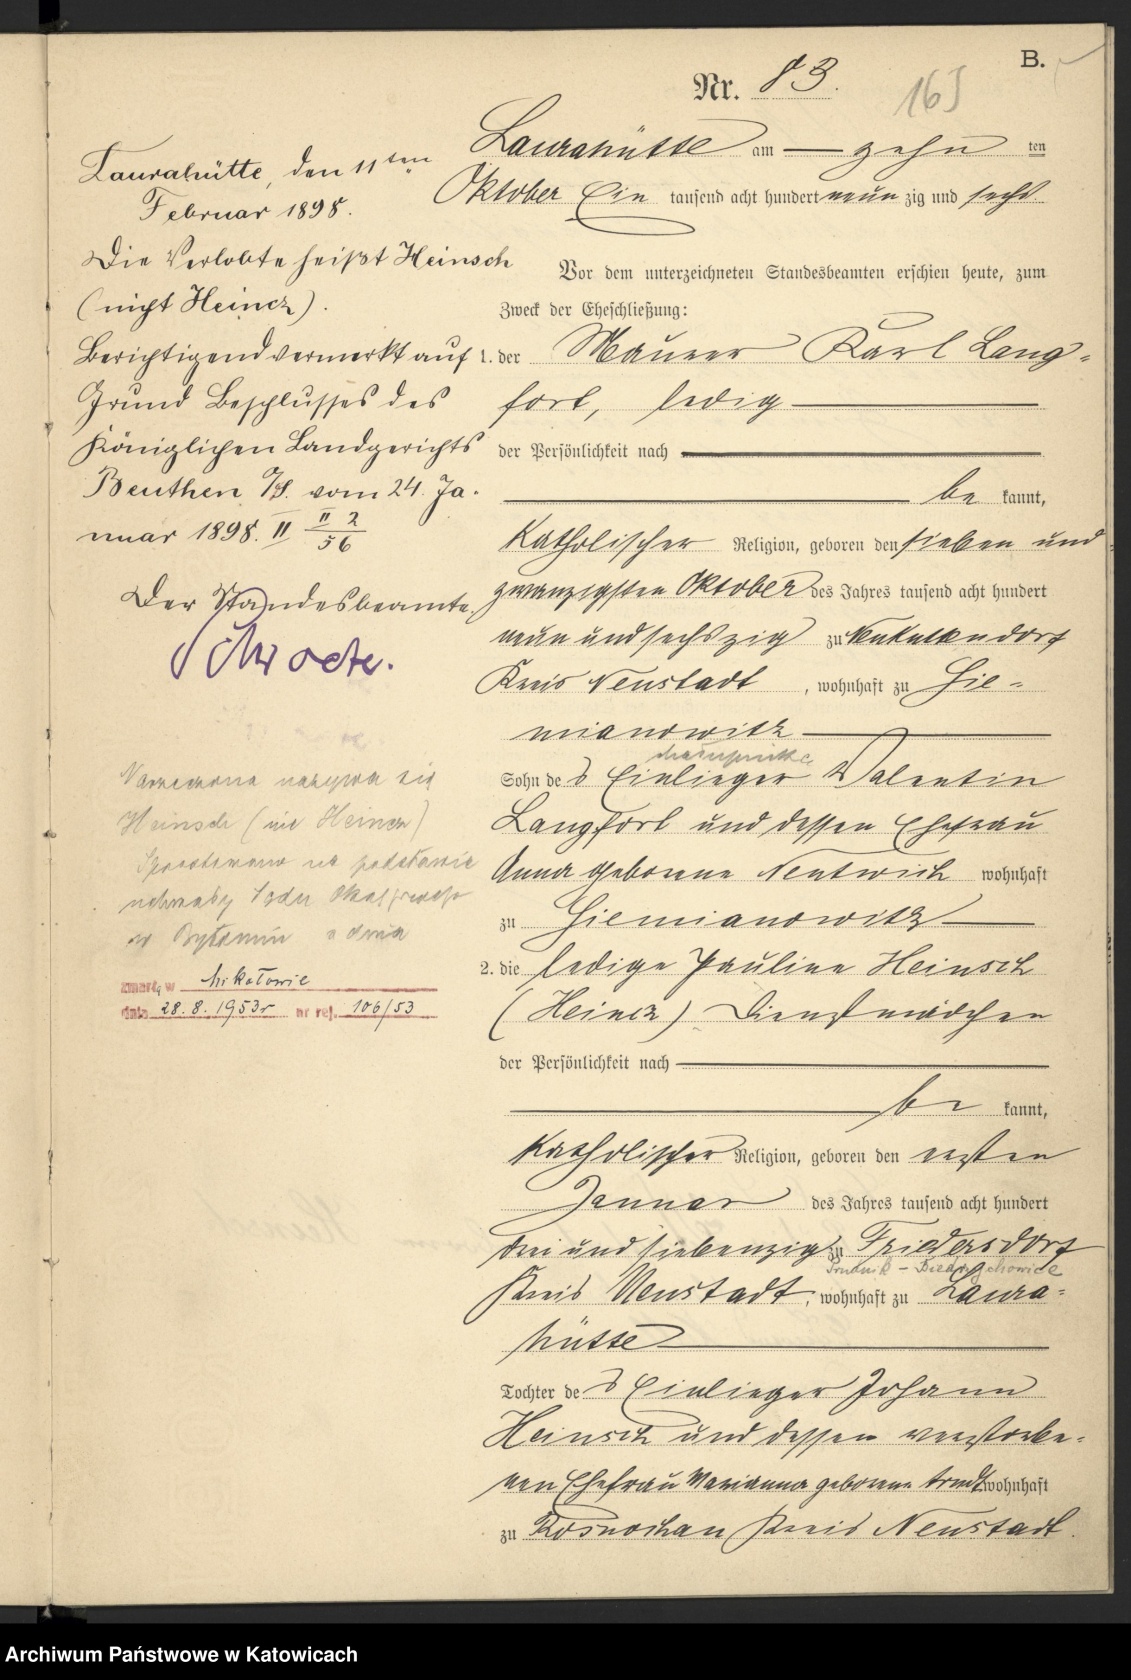 B.
Nr. 83.
165
Laurahütte am — zehn ten
Oktober Ein tausend acht hundert neun zig und sechs
Vor dem unterzeichneten Standesbeamten erschien heute, zum
Zweck der Eheschließung:
1. der Maurer Karl Lang-
fort, ledig
der Persönlichkeit nach
be kannt,
Katholischer Religion, geboren den sieben und
zwanzigsten Oktober des Jahres tausend acht hundert
neun und sechszig zu
Kreis Neustadt, wohnhaft zu Sie-
mianowitz
Sohn des Einlieger Valentin
Langfort und dessen Ehefrau
Anna geborene Nentwich wohnhaft
zu Siemianowitz
2. die ledige Pauline Heinsch
(Heincz) Dienstmädchen
der Persönlichkeit nach
be kannt,
Katholischer Religion, geboren den ersten
Januar des Jahres tausend acht hundert
drei und siebenzig zu Friedersdorf
Prudnik - Biedrzychowice
Kreis Neustadt, wohnhaft zu Laura-
hütte
Tochter des Einlieger Johann
Heinsch und dessen verstorbe-
nen Ehefrau Marianna geborene wohnhaft
zu Rosnochau Kreis Neustadt.
Laurahütte, den 11ten
Februar 1898.
Die Verlobte heißt Heinsch
(nicht Heincz).
Berichtigend vermerkt auf
Grund Beschlusses des
Königlichen Landgerichts
Beuthen O/S. vom 24. Ja-
nuar 1898. II II 2/56
Der Standesbeamte.
nazywa się
Heinsch (nie Heincz)
Sprostowano na podstawie
uchwały Sądu Okręgowego
w Bytomiu z dnia
zmarł, w Mikołowie
data 28.8.1953r nr rej. 106/53
Archiwum Państwowe w Katowicach